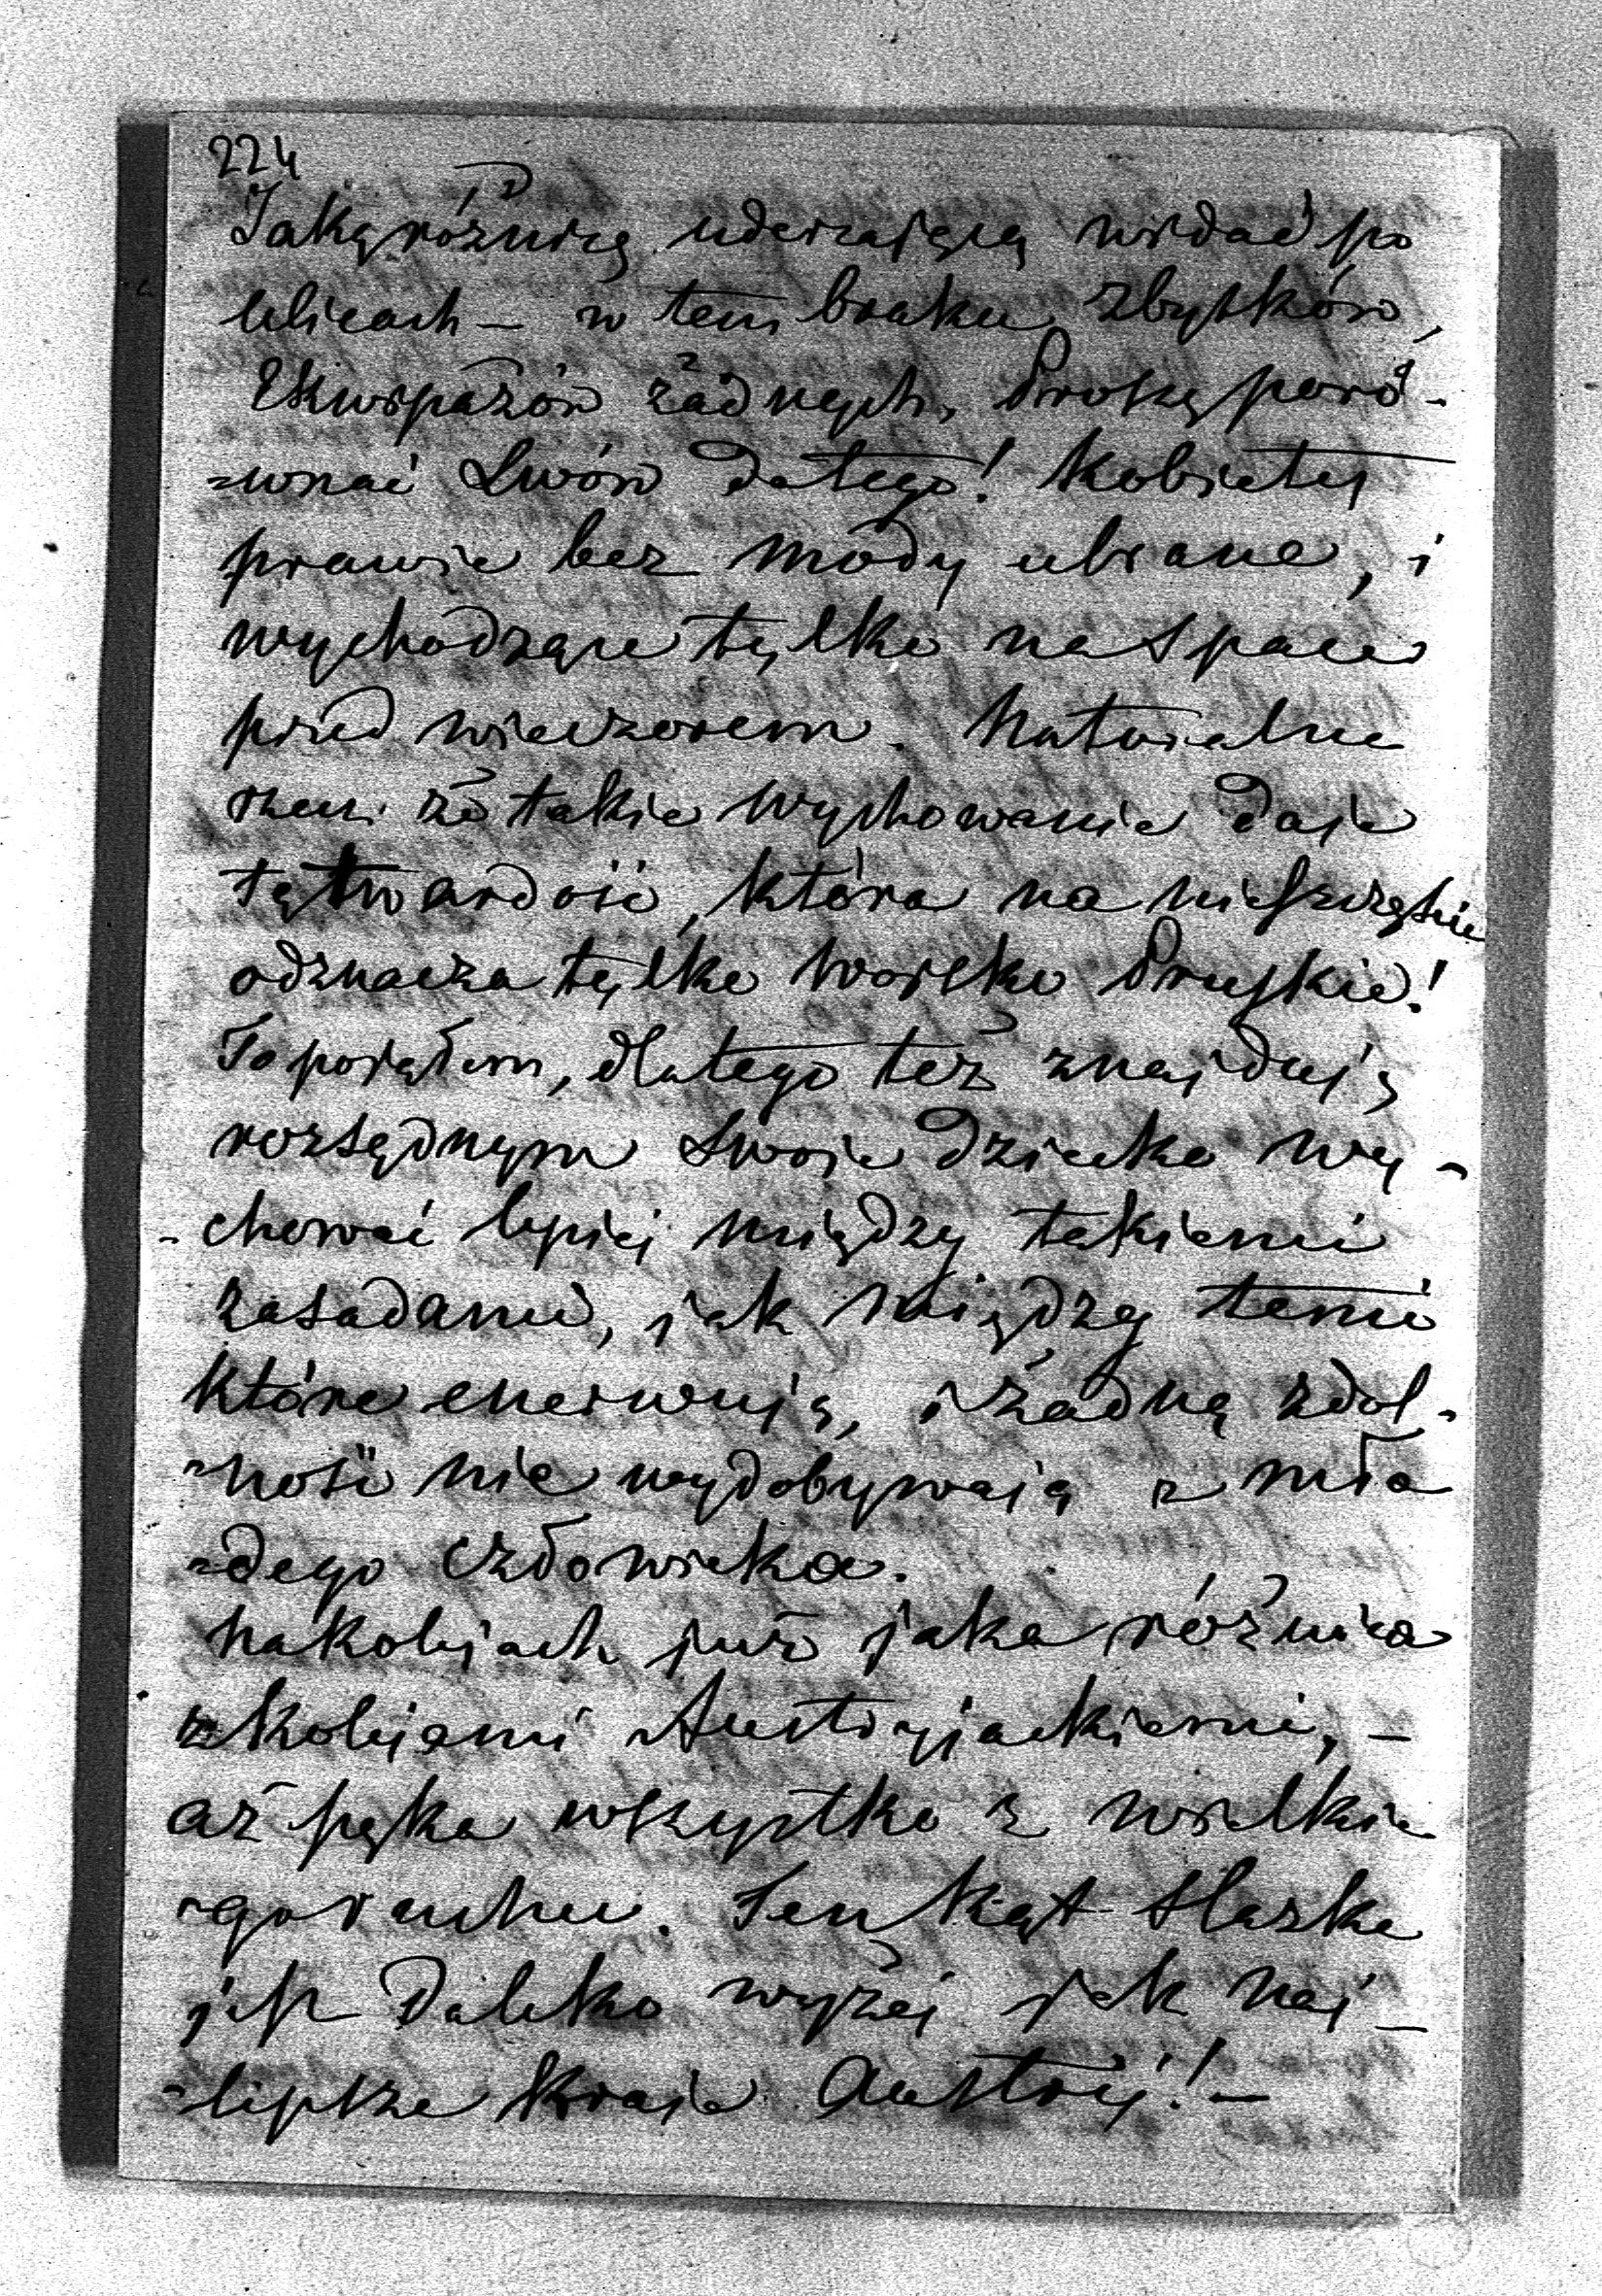 224
Jaką różnicę uderzającą widać po
ulicach – w tem braku zbytków,
Ekwipażów żadnych, Proszę poró-
-wnać Lwów do tego! Kobiety
prawie bez mody ubrane, i
wychodzące tylko na spacer
przed wieczorem. Naturalne
że takie wychowanie daje
tę twardość, która na nieszczęście
odznacza tylko wojsko Pruskie!
To pojąłem, dlatego też znajduję
rozsądnym swoje dziecko wy-
-chować lepiej między takiemi
zasadami, jak między temi
które enerwują, i żadną zdol-
-ność nie wydobywają z mło
-dego człowieka.
Na kolejach już jaka różnica
z kolejami Austryjackiemi, –
aż pęka wszystko z wielkie
-go ruchu. Ten kąt Szlązka
jest daleko wyżej jak naj-
-lepsze kraje Austrij! –